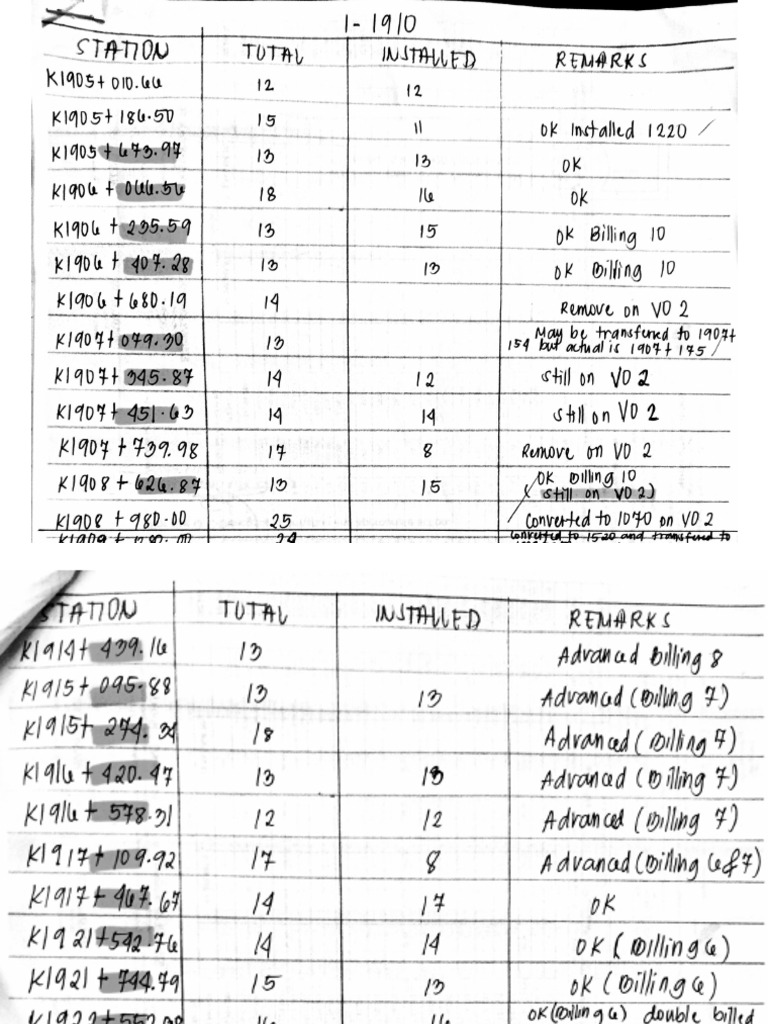 1-1910
STATION TOTAL INSTALLED REMARKS
K1905+010.66 12 12
K1905+186.50 15 11 OK Installed 1220 /
K1905+673.97 13 13 OK
K1906+066.56 18 16 OK
K1906+235.59 13 15 OK Billing 10
K1906+407.28 13 13 OK Billing 10
K1906+680.19 14 Remove on VO 2
K1907+079.30 13 May be transferred to 1907+
154 but actual is 1907+175 /
K1907+345.87 14 12 Still on VO 2
K1907+451.63 14 14 Still on VO 2
K1907+739.98 17 8 Remove on VO 2
K1908+626.87 13 15 OK Billing 10
(Still on VO 2)
K1908+980.00 25 Converted to 1070 on VO 2
24 Converted to 1520 and transfered to
STATION TOTAL INSTALLED REMARKS
K1914+439.16 13 Advanced Billing 8
K1915+095.88 13 13 Advanced (Billing 7)
K1915+274.34 18 Advanced (Billing 7)
K1916+420.47 13 13 Advanced (Billing 7)
K1916+578.31 12 12 Advanced (Billing 7)
K1917+109.92 17 8 Advanced (Billing 6&7)
K1917+467.67 14 17 OK
K1921+542.76 14 14 OK (Billing 6)
K1921+744.79 15 13 OK (Billing 6)
OK (Billing 6) double billed